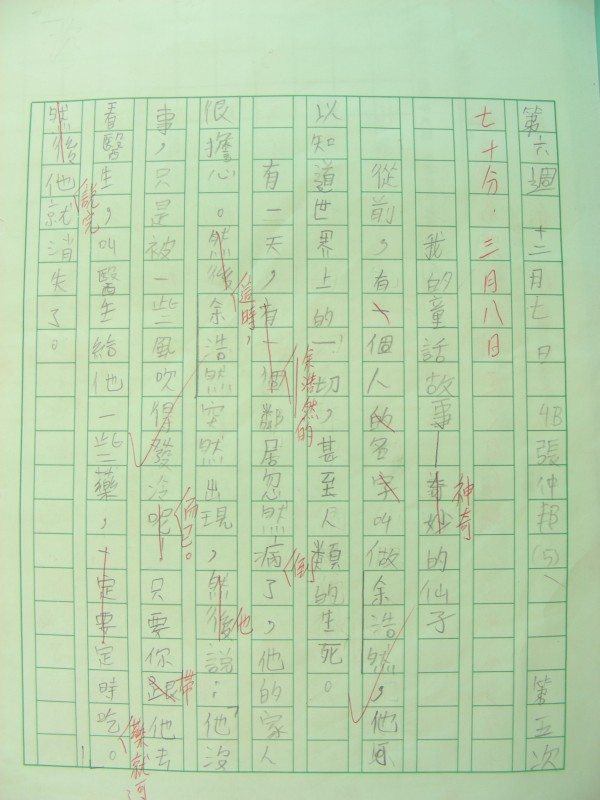 第六週 十二月七日 4B張仲邦(5) 第五次
七十分,三月八日
我的童話故事—奇妙的仙子
神奇
從前,有一個人的名字叫做余浩然,他
以知道世界上的一切,甚至人類的生死。
有一天,有一個鄰居忽然病了,他的家人
余浩然的
倒
很擔心。然後余浩然突然出現,然後說:「他沒
這時,
他
事,只是被一些風吹得發冷呢!只要你跟他去
而已。
帶
看醫生,叫醫生給他一些藥,一定要定時吃。」
藥就可
然後他就消失了。
說完